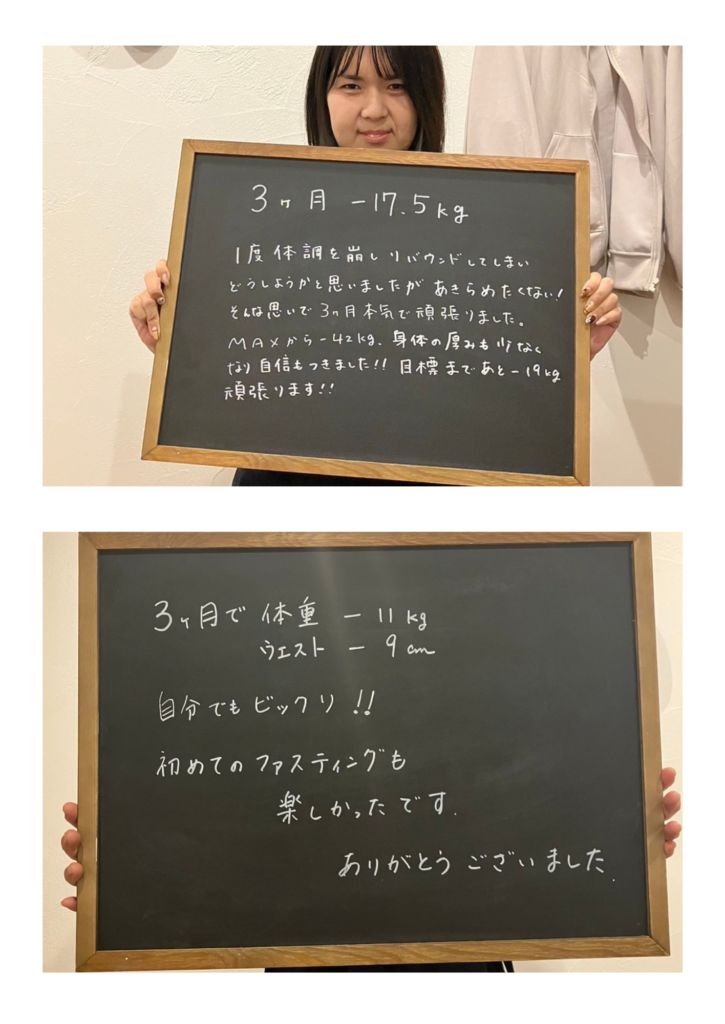 3ヶ月 -17.5kg
1度体調を崩しリバウンドしてしまい
どうしようかと思いましたが あきらめたくない!
そんな思いで3ヶ月本気で頑張りました。
MAXから-42kg、身体の厚みも少なく
なり自信もつきました!! 目標まであと-19kg
頑張ります!!
3ヶ月で 体重 - 11kg
ウエスト - 9cm
自分でもビックリ!!
初めてのファスティングも
楽しかったです.
ありがとうございました.